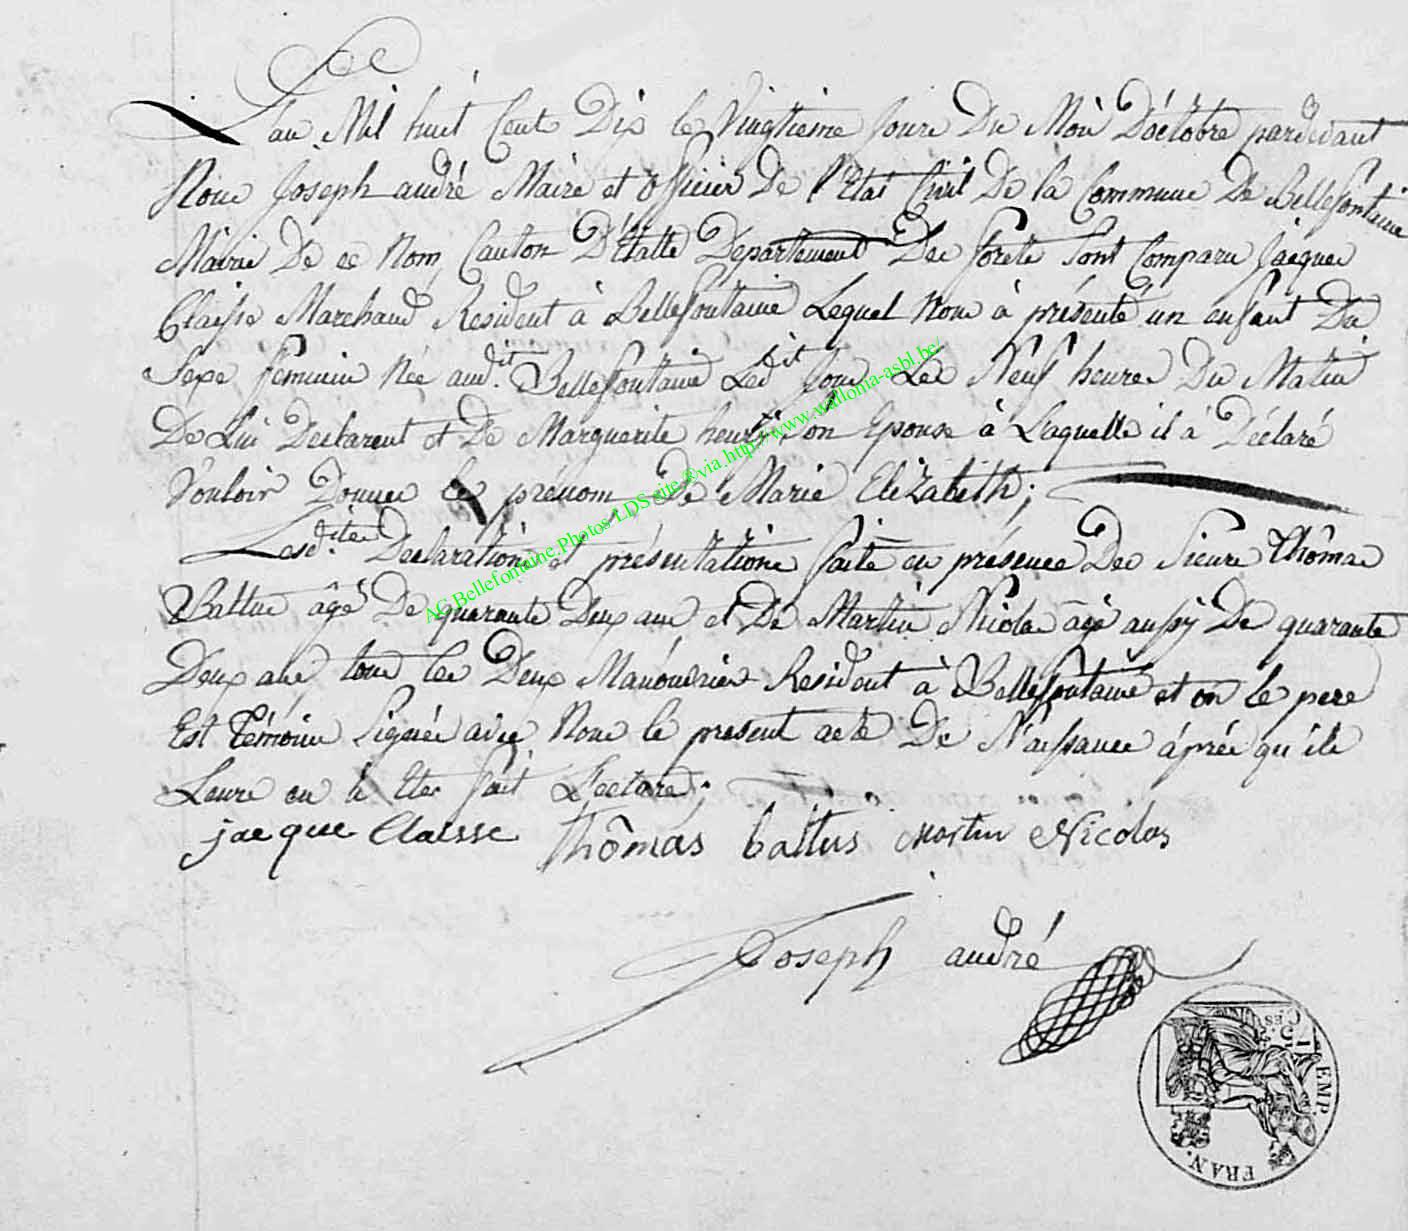 L'an Mil huit Cent Dix le Vingtieme Jour Du Moi D'octobre pardevant
Nous Joseph andré Maire et officier De l'Etat Civil De la Commune De Bellefontaine
Mairie De ce Nom Canton D'Etalle Departement Des forets Sont Comparu Jacques
Claisse Marchand Resident à Bellefontaine Lequel Nous à présenté un enfant Du
Sexe feminin Née aud.it Bellefontaine Ledit Jour Les Neuf heures Du Matin
De Lui Declarent et De Marguerite henry Son Epouse à Laquelle il à Déclaré
Vouloir Donner le prénom De Marie Elizabeth;
Lesd.ites Declaration et présentation faite en présence Des Sieurs Thômas
Baltus âgé De quarante Deux ans et De Martin Nicolas agé aussy De quarante
Deux ans tous les Deux Manouvriers Resident à Bellefontaine et on le pere
Est Témoins Signés avec Nous le present acte De Naissance áprés qu'ils
Leurs en à Etes fait Lecture;
jacque Claisse Thômas baltus Martin Nicolas
Joseph andré
AG.Bellefontaine.Photos LDS site ®via.http://www.wallonia-asbl.be/
EMP. FRAN.